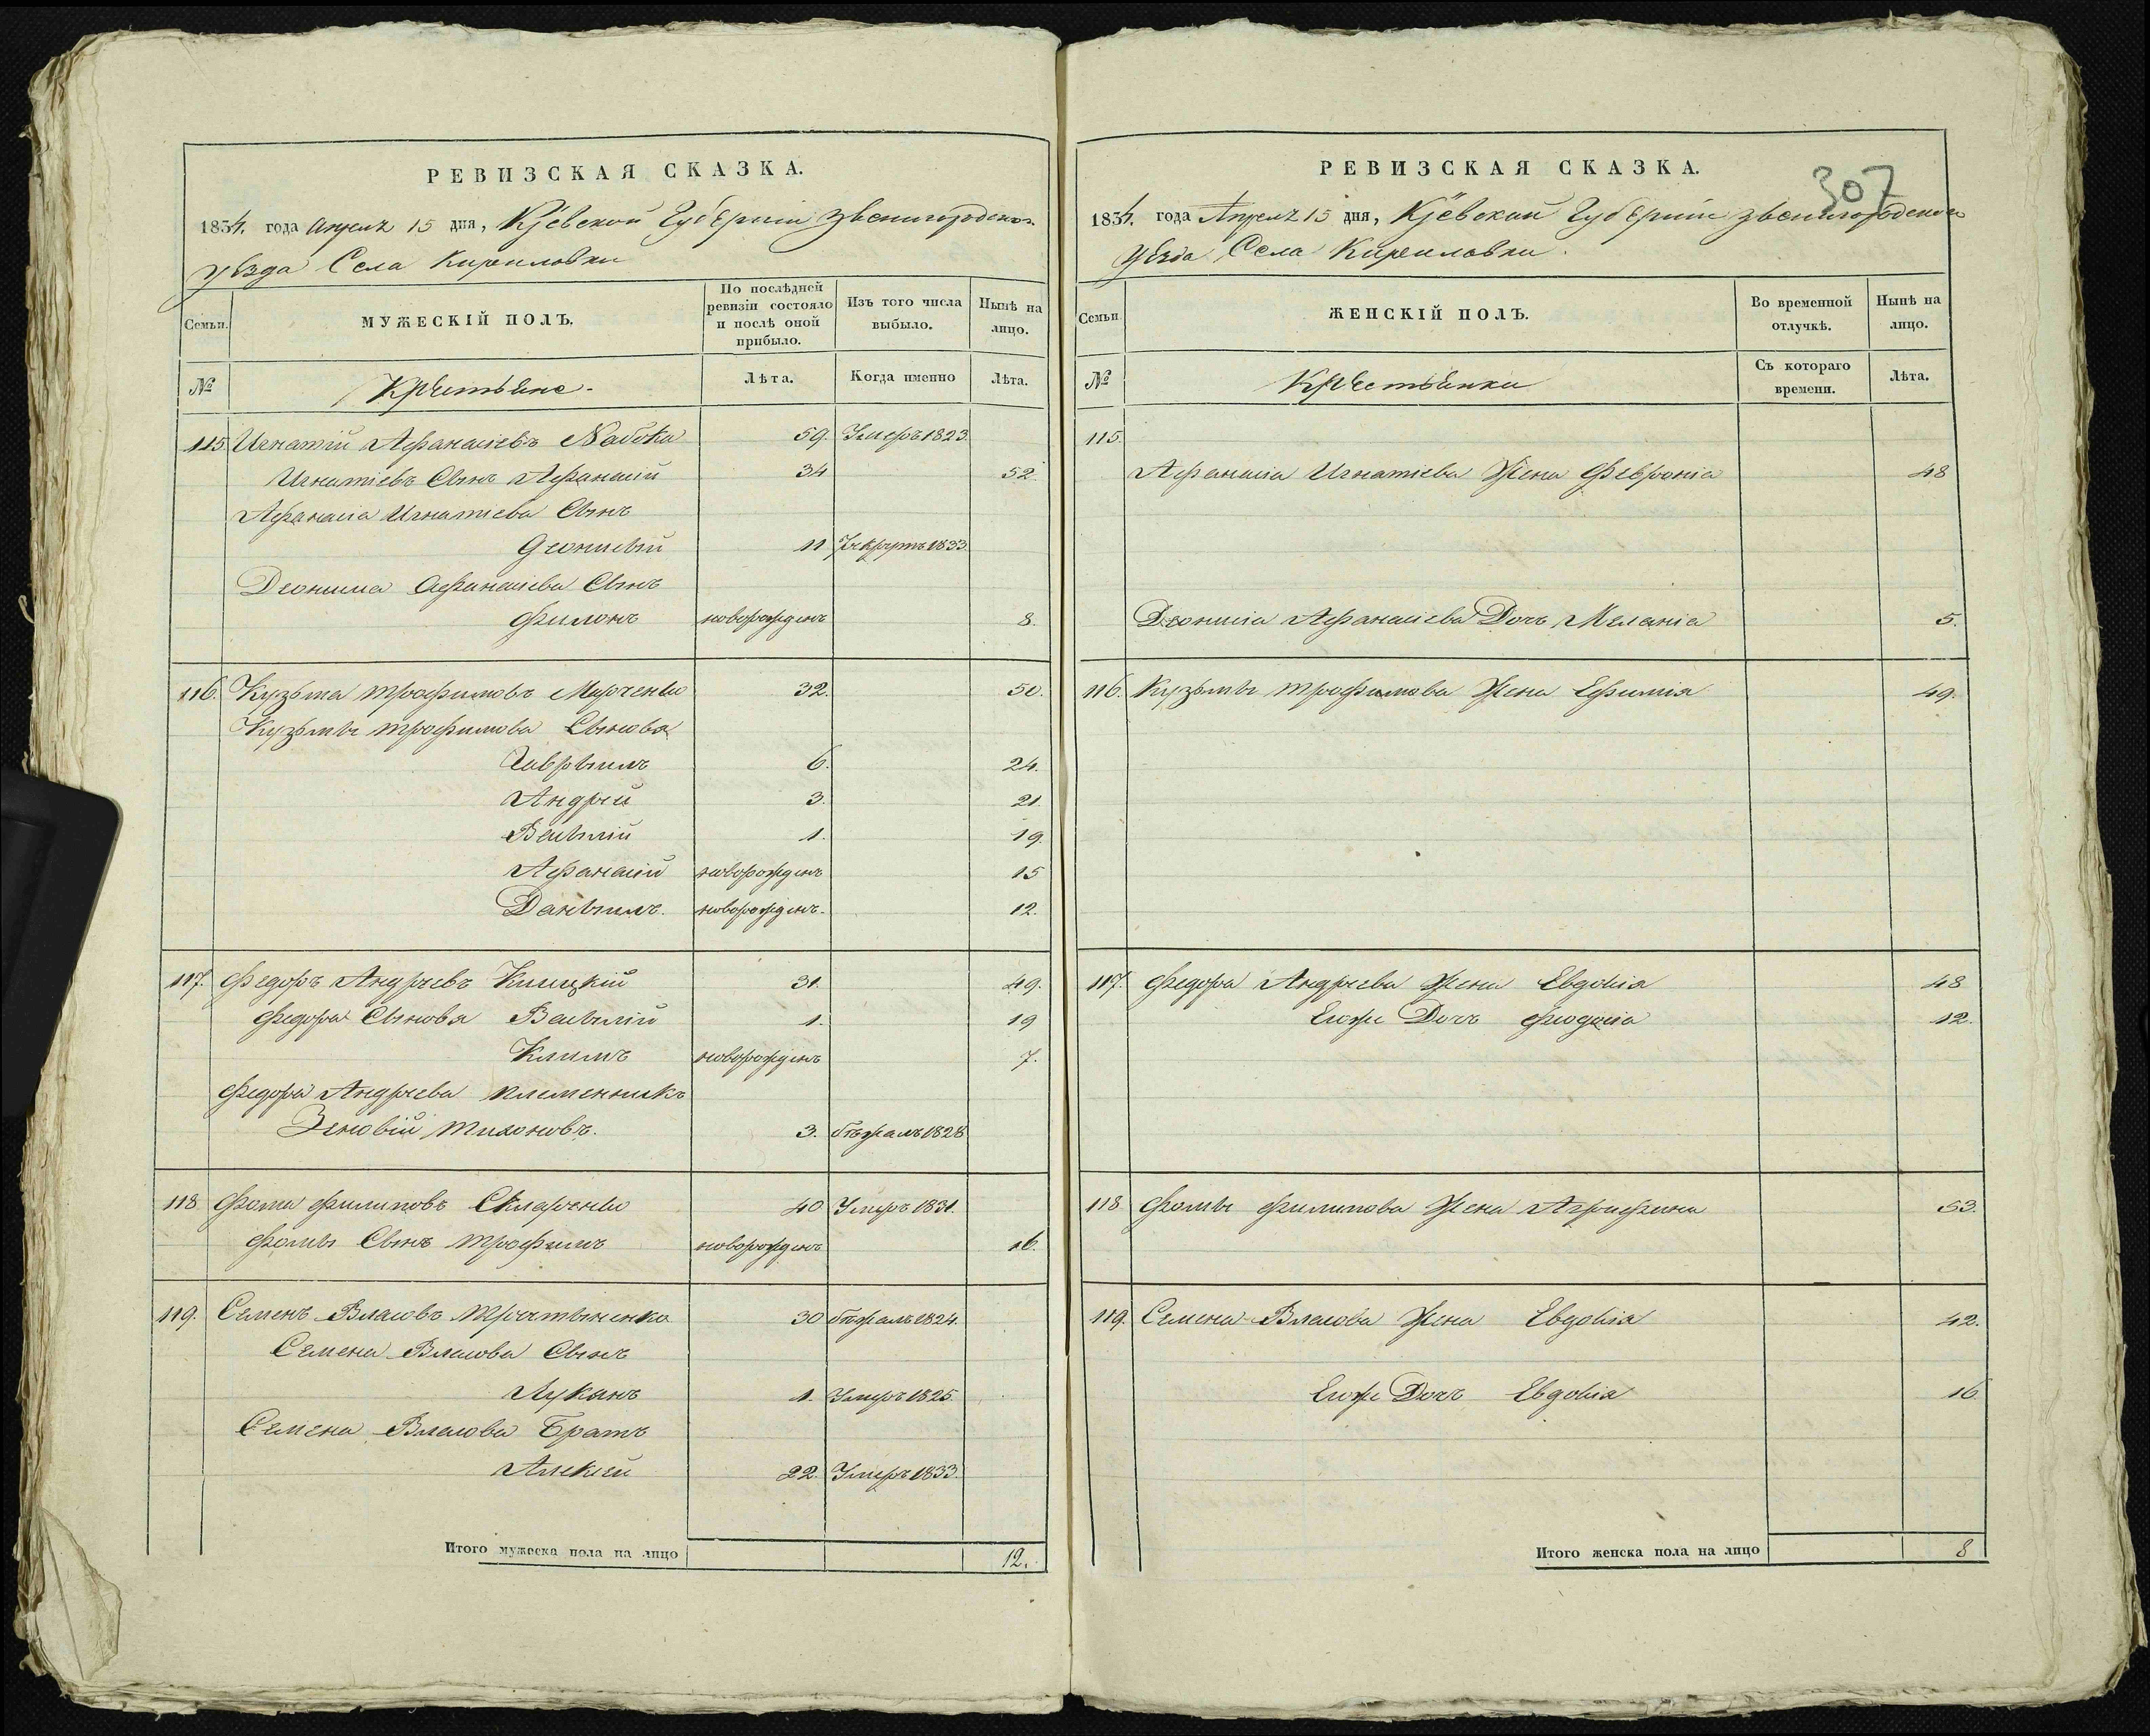 РЕВИЗСКАЯ СКАЗКА.
1834. года Апреля 15 дня, Кіевской Губерніи Звенигородскаго
уѣзда Села Кириловки
Семьи.
МУЖЕСКІЙ ПОЛЪ.
По послѣдней ревизіи состояло и послѣ оной прибыло.
Изъ того числа выбыло.
Нынѣ на лицо.
№ Крестьяне. Лѣта. Когда именно Лѣта.
115. Игнатій Афанасіевъ Набока 59. Умеръ 1823.
Игнатіевъ Сынъ Афанасій 34 52.
Афанасія Игнатиева Сынъ
Деонисій 11 Рекрутъ 1833.
Деонисиа Афанасиева Сынъ
Филонъ новорожденъ 8.
116. Кузьма Трофимовъ Марченко 32. 50.
Кузьмы Трофимова Сыновя
Гаврыилъ 6. 24.
Андрей 3. 21.
Васылій 1. 19.
Афанасій новорожденъ 15
Даныилъ. новорожденъ. 12.
117. Федоръ Андреевъ 31. 49.
Федора Сыновя Васылій 1. 19
Климъ новорожденъ 7.
Федора Андреева племенникъ
Зеновій Тихоновъ. 3. бѣжалъ 1828
118 Фома Филиповъ Скляренко 40 Умеръ 1831.
Фомы Сынъ Трофимъ новорожденъ 16.
119. Семенъ Власовъ 30 бѣжалъ 1824.
Семена Власова Сынъ
Лукянъ 1. Умеръ 1825
Семена Власова Братъ
Алексей 22. Умеръ 1833.
Итого мужеска пола на лицо 12.
РЕВИЗСКАЯ СКАЗКА.
307
1834. года Апреля 15 дня, Кіевской Губерніи Звенигородскаго
уѣзда Села Кириловки.
Семьи
ЖЕНСКІЙ ПОЛЪ.
Во временной отлучкѣ.
Нынѣ на лицо.
№ Крестьянки Съ котораго времени. Лѣта.
115.
Афанасіа Игнатиева Жена Феврониа 48
Деонисіа Афанасіева Дочъ Меланіа 5.
116. Кузьмы Трофимова Жена Ефимия 49.
117. Федора Андреева Жена Евдокія 48
Егоже Дочъ Феодосіа 12.
118. Фомы Филипова Жена Агрифина 53.
119. Семена Власова Жена Евдокія 42.
Егоже Дочъ Евдокія 16
Итого женска пола на лицо 8